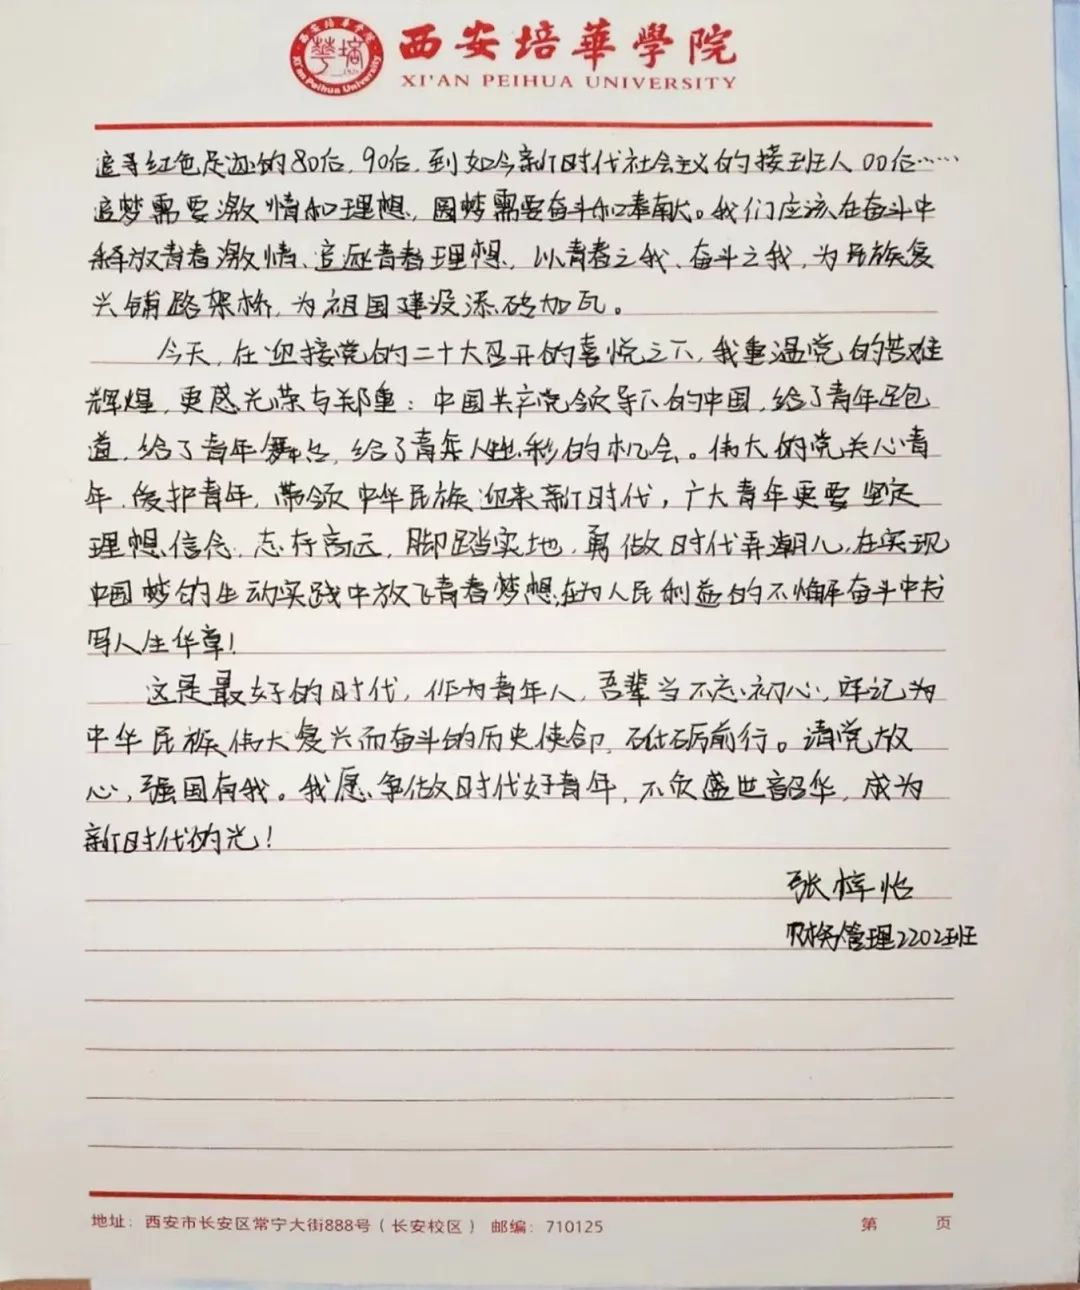 西安培華學院
XI'AN PEIHUA UNIVERSITY
西安培华学院
Xi'an Peihua University
追寻红色足迹的80后,90后,到如今新时代社会主义的接班人00后……
追梦需要激情和理想,圆梦需要奋斗和奉献。我们应该在奋斗中
释放青春激情、追逐青春理想,以青春之我、奋斗之我,为民族复
兴铺路架桥,为祖国建设添砖加瓦。
今天,在迎接党的二十大召开的喜悦之下,我重温党的苦难
辉煌,更感光荣与郑重:中国共产党领导下的中国,给了青年足包
道,给了青年舞台,给了青年人生出彩的机会。伟大的党关心青
年,爱护青年,带领中华民族迎来新时代,广大青年更要坚定
理想信念,志存高远,脚踏实地,勇做时代弄潮儿,在实现
中国梦的生动实践中放飞青春梦想,在为人民利益的不懈奋斗中书
写人生华章!
这是最好的时代,作为青年人,吾辈当不忘初心,牢记为
中华民族伟大复兴而奋斗的历史使命,砥砺前行。请党放
心,强国有我。我愿争做时代好青年,不负盛世韶华,成为
新时代的光!
张梓怡
财务管理2202班
地址:西安市长安区常宁大街888号(长安校区) 邮编:710125
第 页